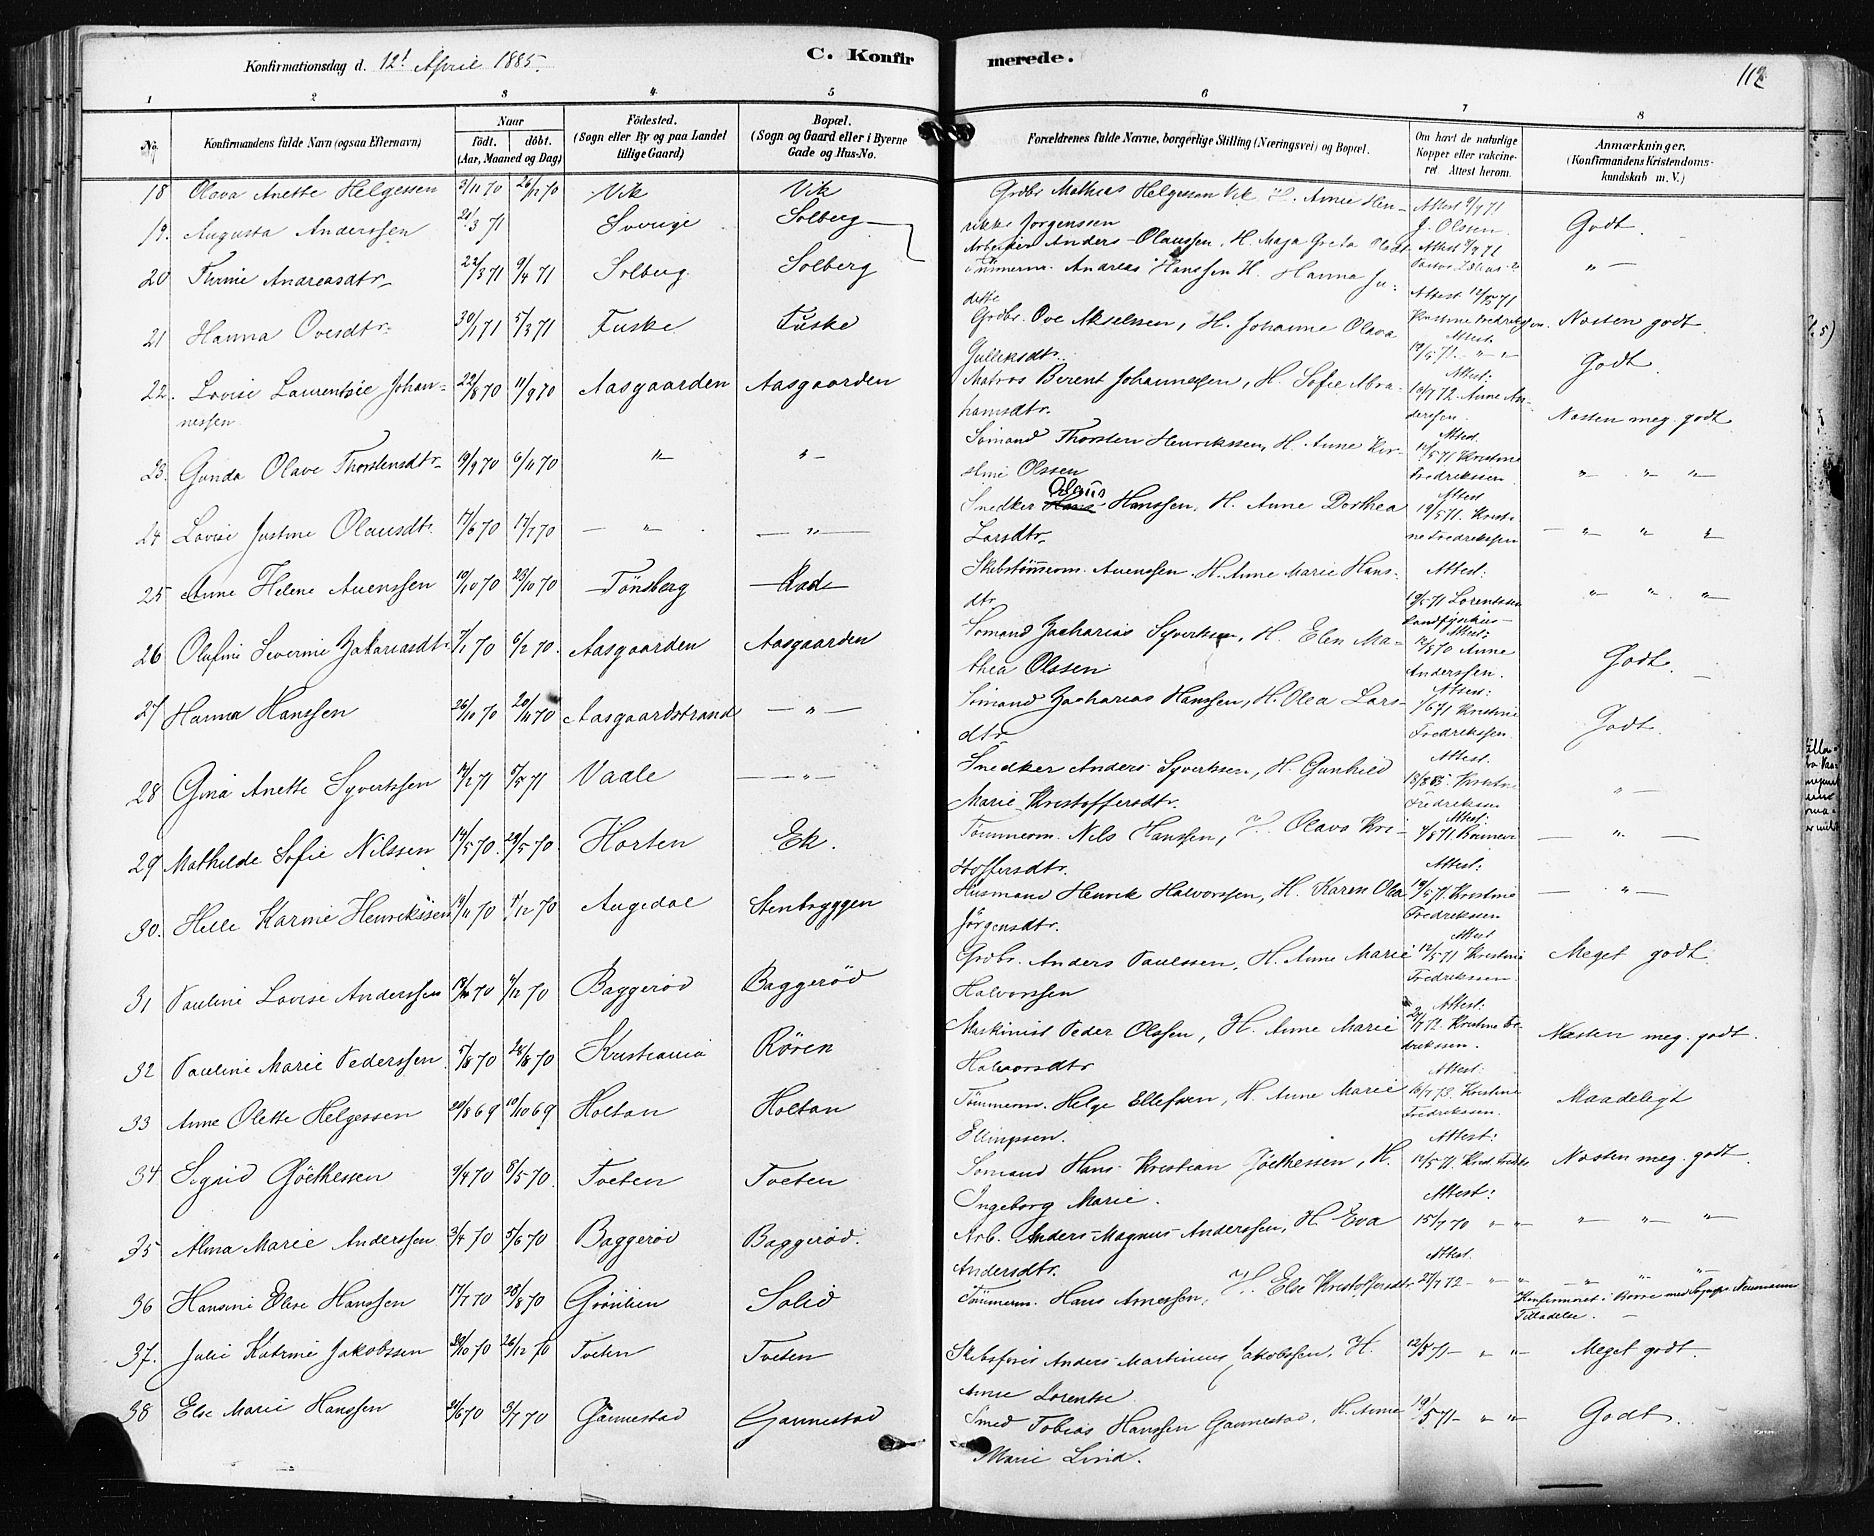 Konfirmationsdag d. 12t April 1885.
C. Konfirmerede.
112
1 2 3 4 5 6 7 8
No. Konfirmandens fulde Navn (ogsaa Efternavn) Naar født. døbt. (Aar, Maaned og Dag) Fødested. (Sogn eller By og paa Landet tillige Gaard) Bopæl. (Sogn og Gaard eller i Byerne Gade og Hus-No. Forældrenes fulde Navne, borgerlige Stilling (Næringsvei) og Bopæl. Om havt de naturlige Kopper eller vakcineret. Attest herom. Anmærkninger. (Konfirmandens Kristendomskundskab m. V.)
18 Olava Anette Helgessen 3/11 70 26/12 70 Vik Vik Grdbr Mathias Helgessen Vik H. Anne Hen-
rikke Jørgenssen Attest 9/9 71 J. Olssen
19. Augusta Anderssen 21/3 71 Sverige Solberg Arbeider Anders Olaussen, H. Maja Greta Attest 9/9 71 Godt.
20 Thrine Andreasdtr 22/3 71 9/4 71 Solberg Solberg Tømmerm. Andreas Hanssen H. Hanna Ju-
dette Attest 12/5 71 " —
21 Hanna Ovesdtr 30/1 71 5/3 71 Fuske Fuske Grdbr. Ove Akselssen, H. Johanne Olava
Gulliksdtr. Kristine Fredrikssen. Næsten godt
Attest. 12/5 71. " "
22. Lovise Laurentsie Johan-
nessen 22/8 70 11/9 70 Aasgaarden Aasgaarden Matros Berent Johannessen, H. Sofie Abra-
hamsdtr. Attest: 10/7 72. Anne An-
derssen. Godt.
23. Gunda Olave Thorstensdtr 19/9 70 6/11 70 " " — Sømand Thorsten Henrikssen, H. Anne Kir-
stine Olssen Attest 12/5 71 Kristine
Fredrikssen. Næsten meg. godt
24 Lovise Justine Olausdtr. 17/6 70 17/7 70 — " — " — Snedker Olaus Hanssen, H. Anne Dorthea
Larsdtr. Attest 12/5 71. Kristi-
ne Fredrikssen " " "
25 Anne Helene Auenssen 10/10 70 23/10 70 Tønsberg Rad Skibstømmerm. Auenssen. H. Anne Marie Hans-
dtr. Attest: 12/5 71 Lorentssen
" " "
26 Olufine Severine Zakariasdtr 7/1 70 6/2 70. Aasgaarden Aasgaarden Sømand Zacharias Syvertssen, H. Elen Ma-
thea Olssen Attest: 12/8 70 Anne
Anderssen. Godt.
27 Hanna Hanssen 26/10 70 20/11 70 Aasgaardstrand — " — Sømand Zacharias Hanssen, H. Olea Lars-
dtr Attest: 1/6 71 Kristine
Fredrikssen. Godt.
28 Gina Anette Syvertssen 12/2 71 5/5 71 Vaale — " — Snedker Anders Syvertssen, H. Gunhild
Marie Kristoffersdtr. Attest. Kristine
Fredrikssen " —
29 Mathilde Sofie Nilssen 14/5 70. 29/5 70. Horten Ek. Tømmerm. Nils Hanssen, H. Olava Kri-
stoffersdtr. Attest: — " —
30. Helle Karine Henrikssen 19/11 70 4/12 70 Augedal Stenbryggen Husmand Henrik Halvorssen, H. Karen Olea
Jørgensdtr. Attest: 12/5 71. Kristine
Fredrikssen — " —
31 Pauline Lovise Anderssen 4/12 70 Baggerød Baggerød Grdbr. Anders Paulssen, H. Anne Marie
Halvorssen Attest 12/5 71 Kristine
Fredrikssen Meget godt.
32 Pauline Marie Pederssen. 5/8 70 28/8 70 Kristiania Røren Maskinist Peder Olssen, H. Anne Marie
Halvorsdtr Attest: 2/7 72. Kristine Fre-
drikssen. Næsten meg. godt.
33 Anne Olette Helgessen 20/8 69 10/10 69 Holtan Holtan Tømmerm. Helge Ellefssen, H. Anne Marie
Ellingssen. Attest: 16/7 73. Kristine
Fredrikssen. Maadeligt
34 Sigrid Göethessen 9/4 70 8/5 70. Tveten Tveten Sømand Hans Kristian Göethessen, H.
Ingeborg Marie. Attest: 12/5 71. Krist. Fredr. Næsten meg. godt.
35 Alma Marie Anderssen 3/4 70 5/6 70 Baggerød Baggerød. Arb. Anders Magnus Anderssen, H. Eva
Andersdtr. Attest: 15/7 70 " " " " "
36 Hansine Elise Hanssen 17/7 70 28/8 70 Grønlien Solid Tømmerm. Hans Arnessen, H. Else Kristoffersdtr Attest. 27/7 72 " " " " "
Konfirmeret i Borre med Sognepr. Neumanns
Tilladelse. —
37. Julie Katrine Jakobssen 30/10 70 26/12 70 Tveten Tveten Skibsfører Anders Martinius Jakobssen, H.
Anne Lorentse 12/8 71 " " Meget godt.
38 Else Marie Hanssen 3/7 70 Gannestad Gannestad Smed Tobias Hanssen Gannestad, H. Anne
Marie Lind. 19/5 71 " " Godt.